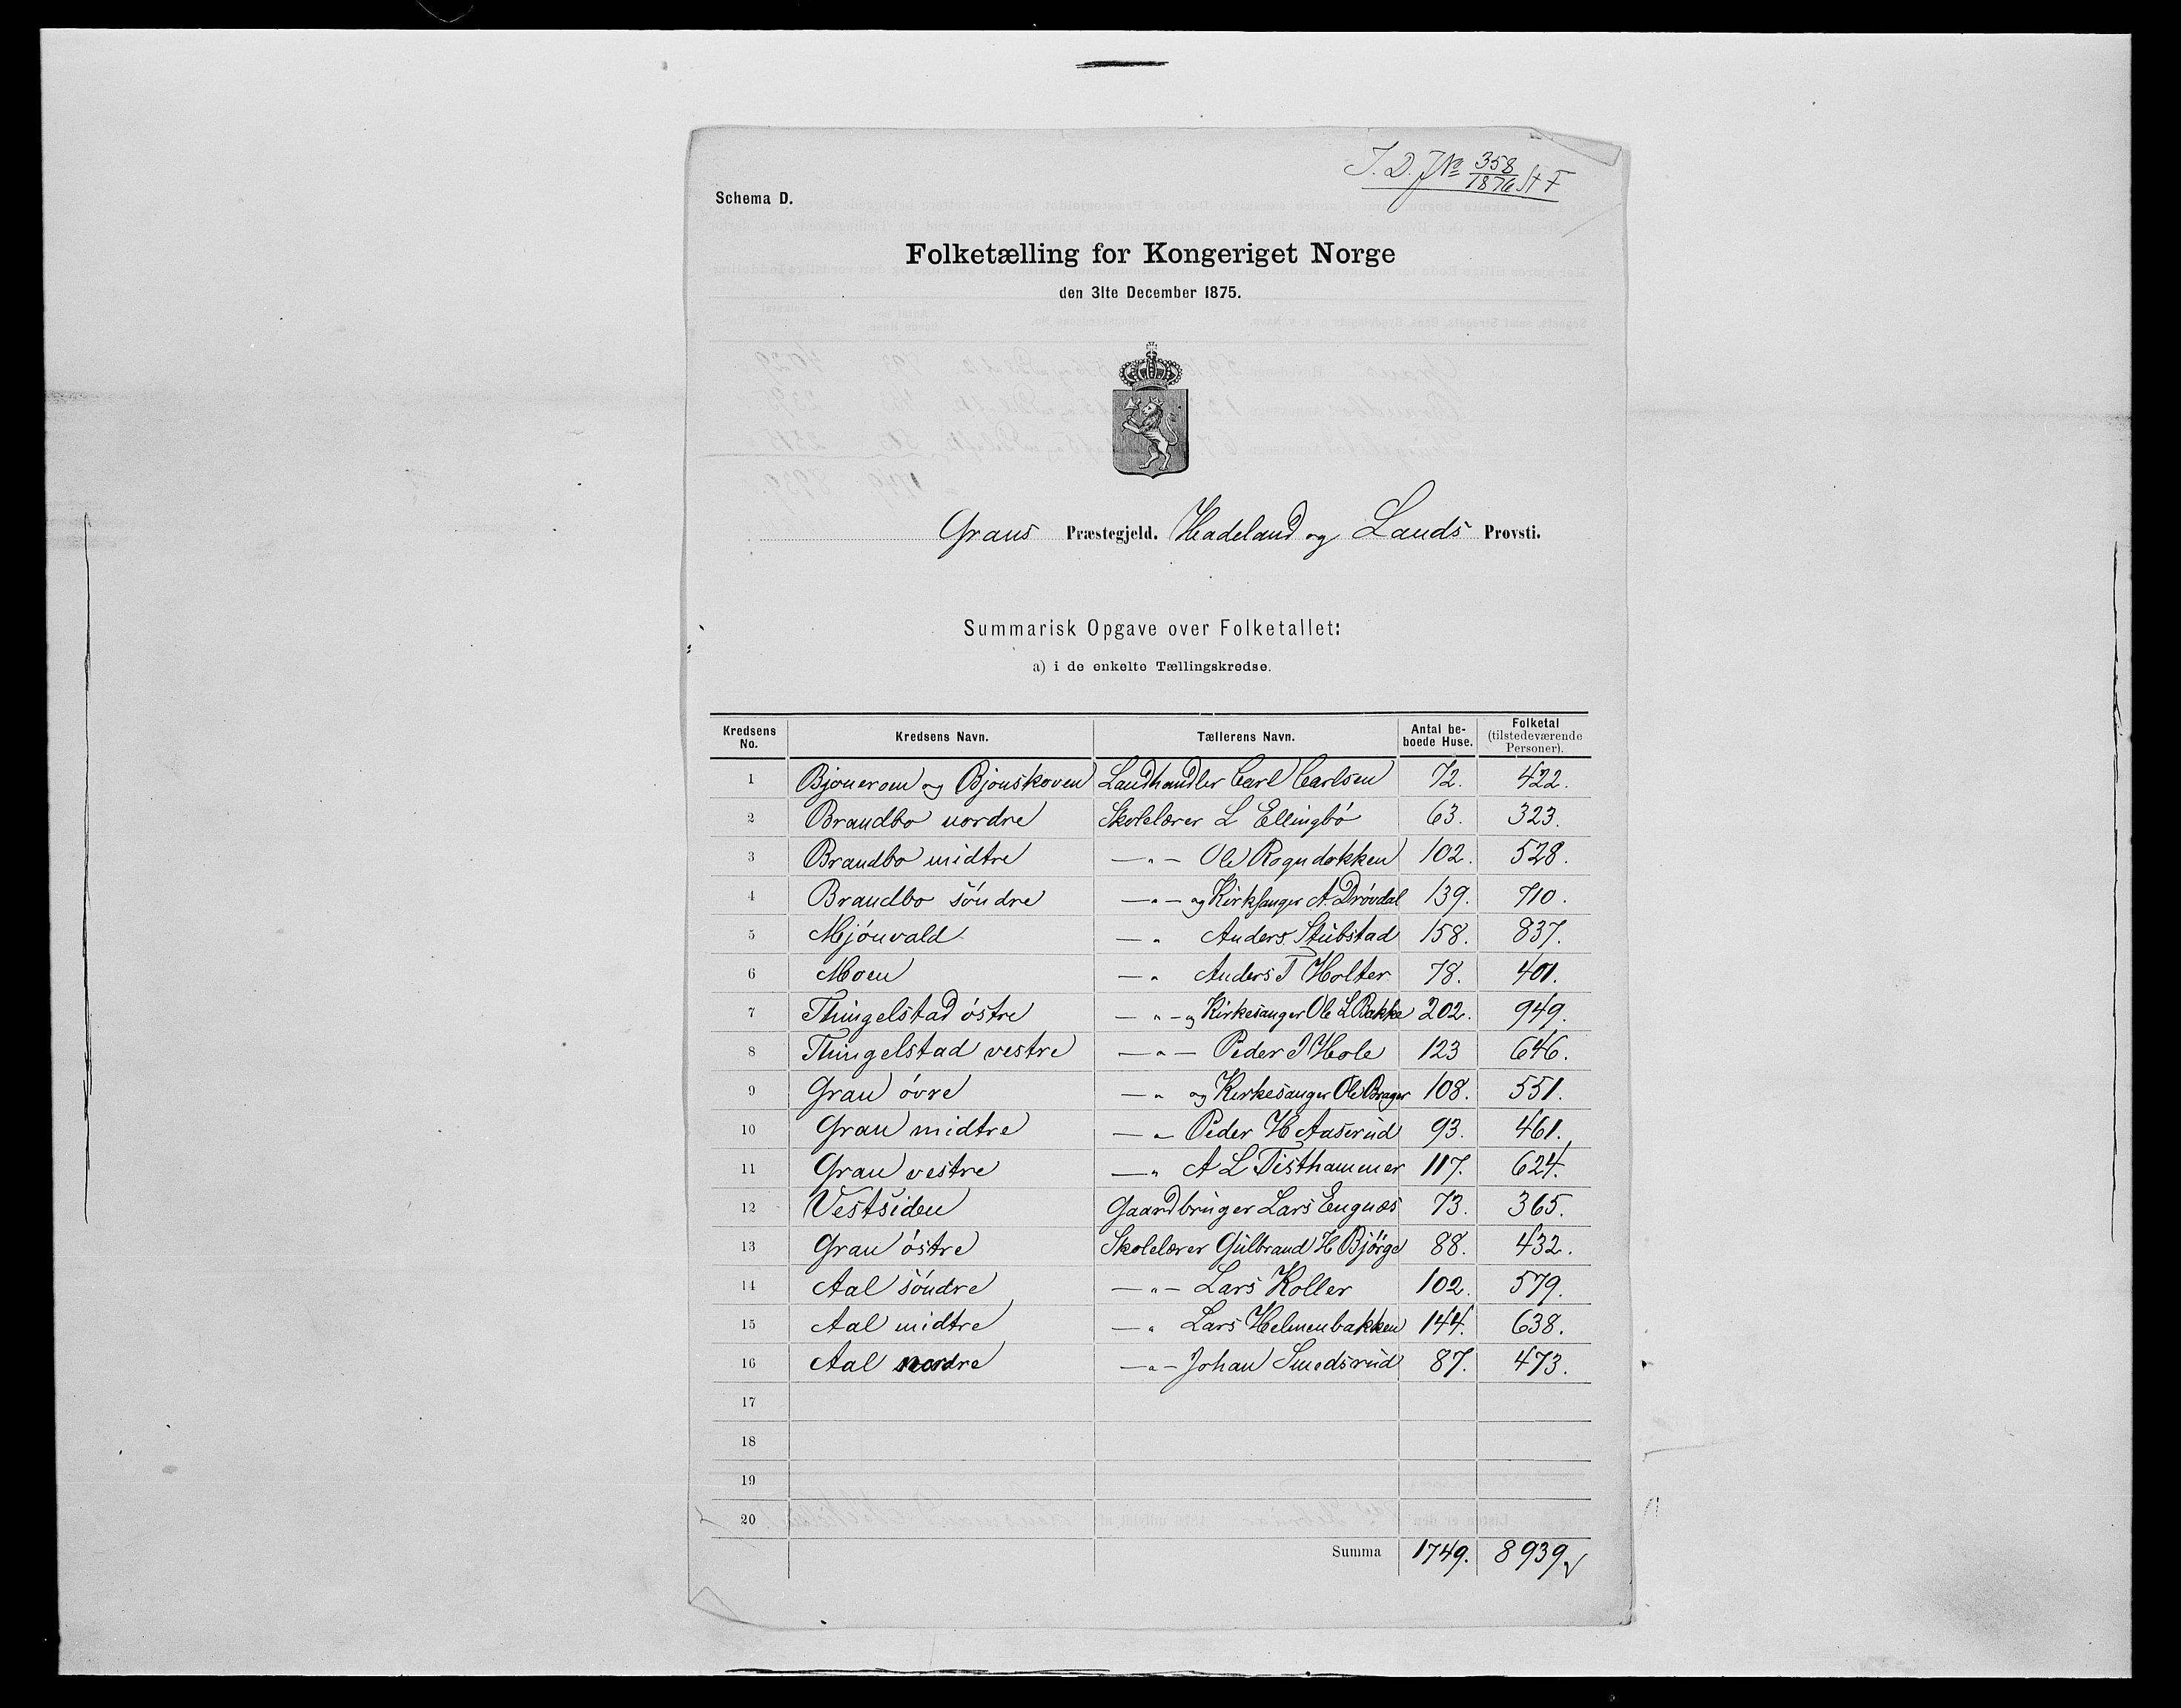 I. D. J№ 358/1876 St F
Schema D.
Folketælling for Kongeriget Norge
den 31te December 1875.
Grans Præstegjeld. Hadeland og Lands Provsti.
Summarisk Opgave over Folketallet:
a) i de enkelte Tællingskredse.
Kredsens No. Kredsens Navn. Tællerens Navn. Antal beboede Huse. Folketal (tilstedeværende Personer).
1 Bjoneroen og Bjonskoven Landhandler Carl Carlsen 72. 422.
2 Brandbo nordre Skolelærer L Ellingbó 63. 323.
3 Brandbo midtre —„— Ole Rogndokken 102. 528.
4 Brandbo sóndre —„— og Kirksanger A. Dróvdal 139. 710.
5 Mjónvald — „ Anders Stubstad 158. 837.
6 Moen — „ Anders T Holter 78. 401.
7 Thingelstad óstre — „ — og Kirkesanger Ole L Bakke 202. 949.
8 Thingelstad vestre —„— Peder I Hole 123 646.
9 Gran óvre — „ og Kirkesanger Ole Brager 108. 551.
10 Gran midtre — „ Peder H Aaserud 93. 461.
11 Gran vestre — „ A L Tisthammer 117. 624.
12 Vestsiden Gaardbruger Lars Engnæs 73. 365.
13 Gran óstre Skolelærer Gulbrand H Bjórge 88. 432.
14 Aal sóndre —„— Lars Koller 102. 579.
15 Aal midtre — „ Lars Helmenbakken 144. 638.
16 Aal nordre —„— Johan Smedsrud 87. 473.
17
18
19
20
Summa 1749. 8939.